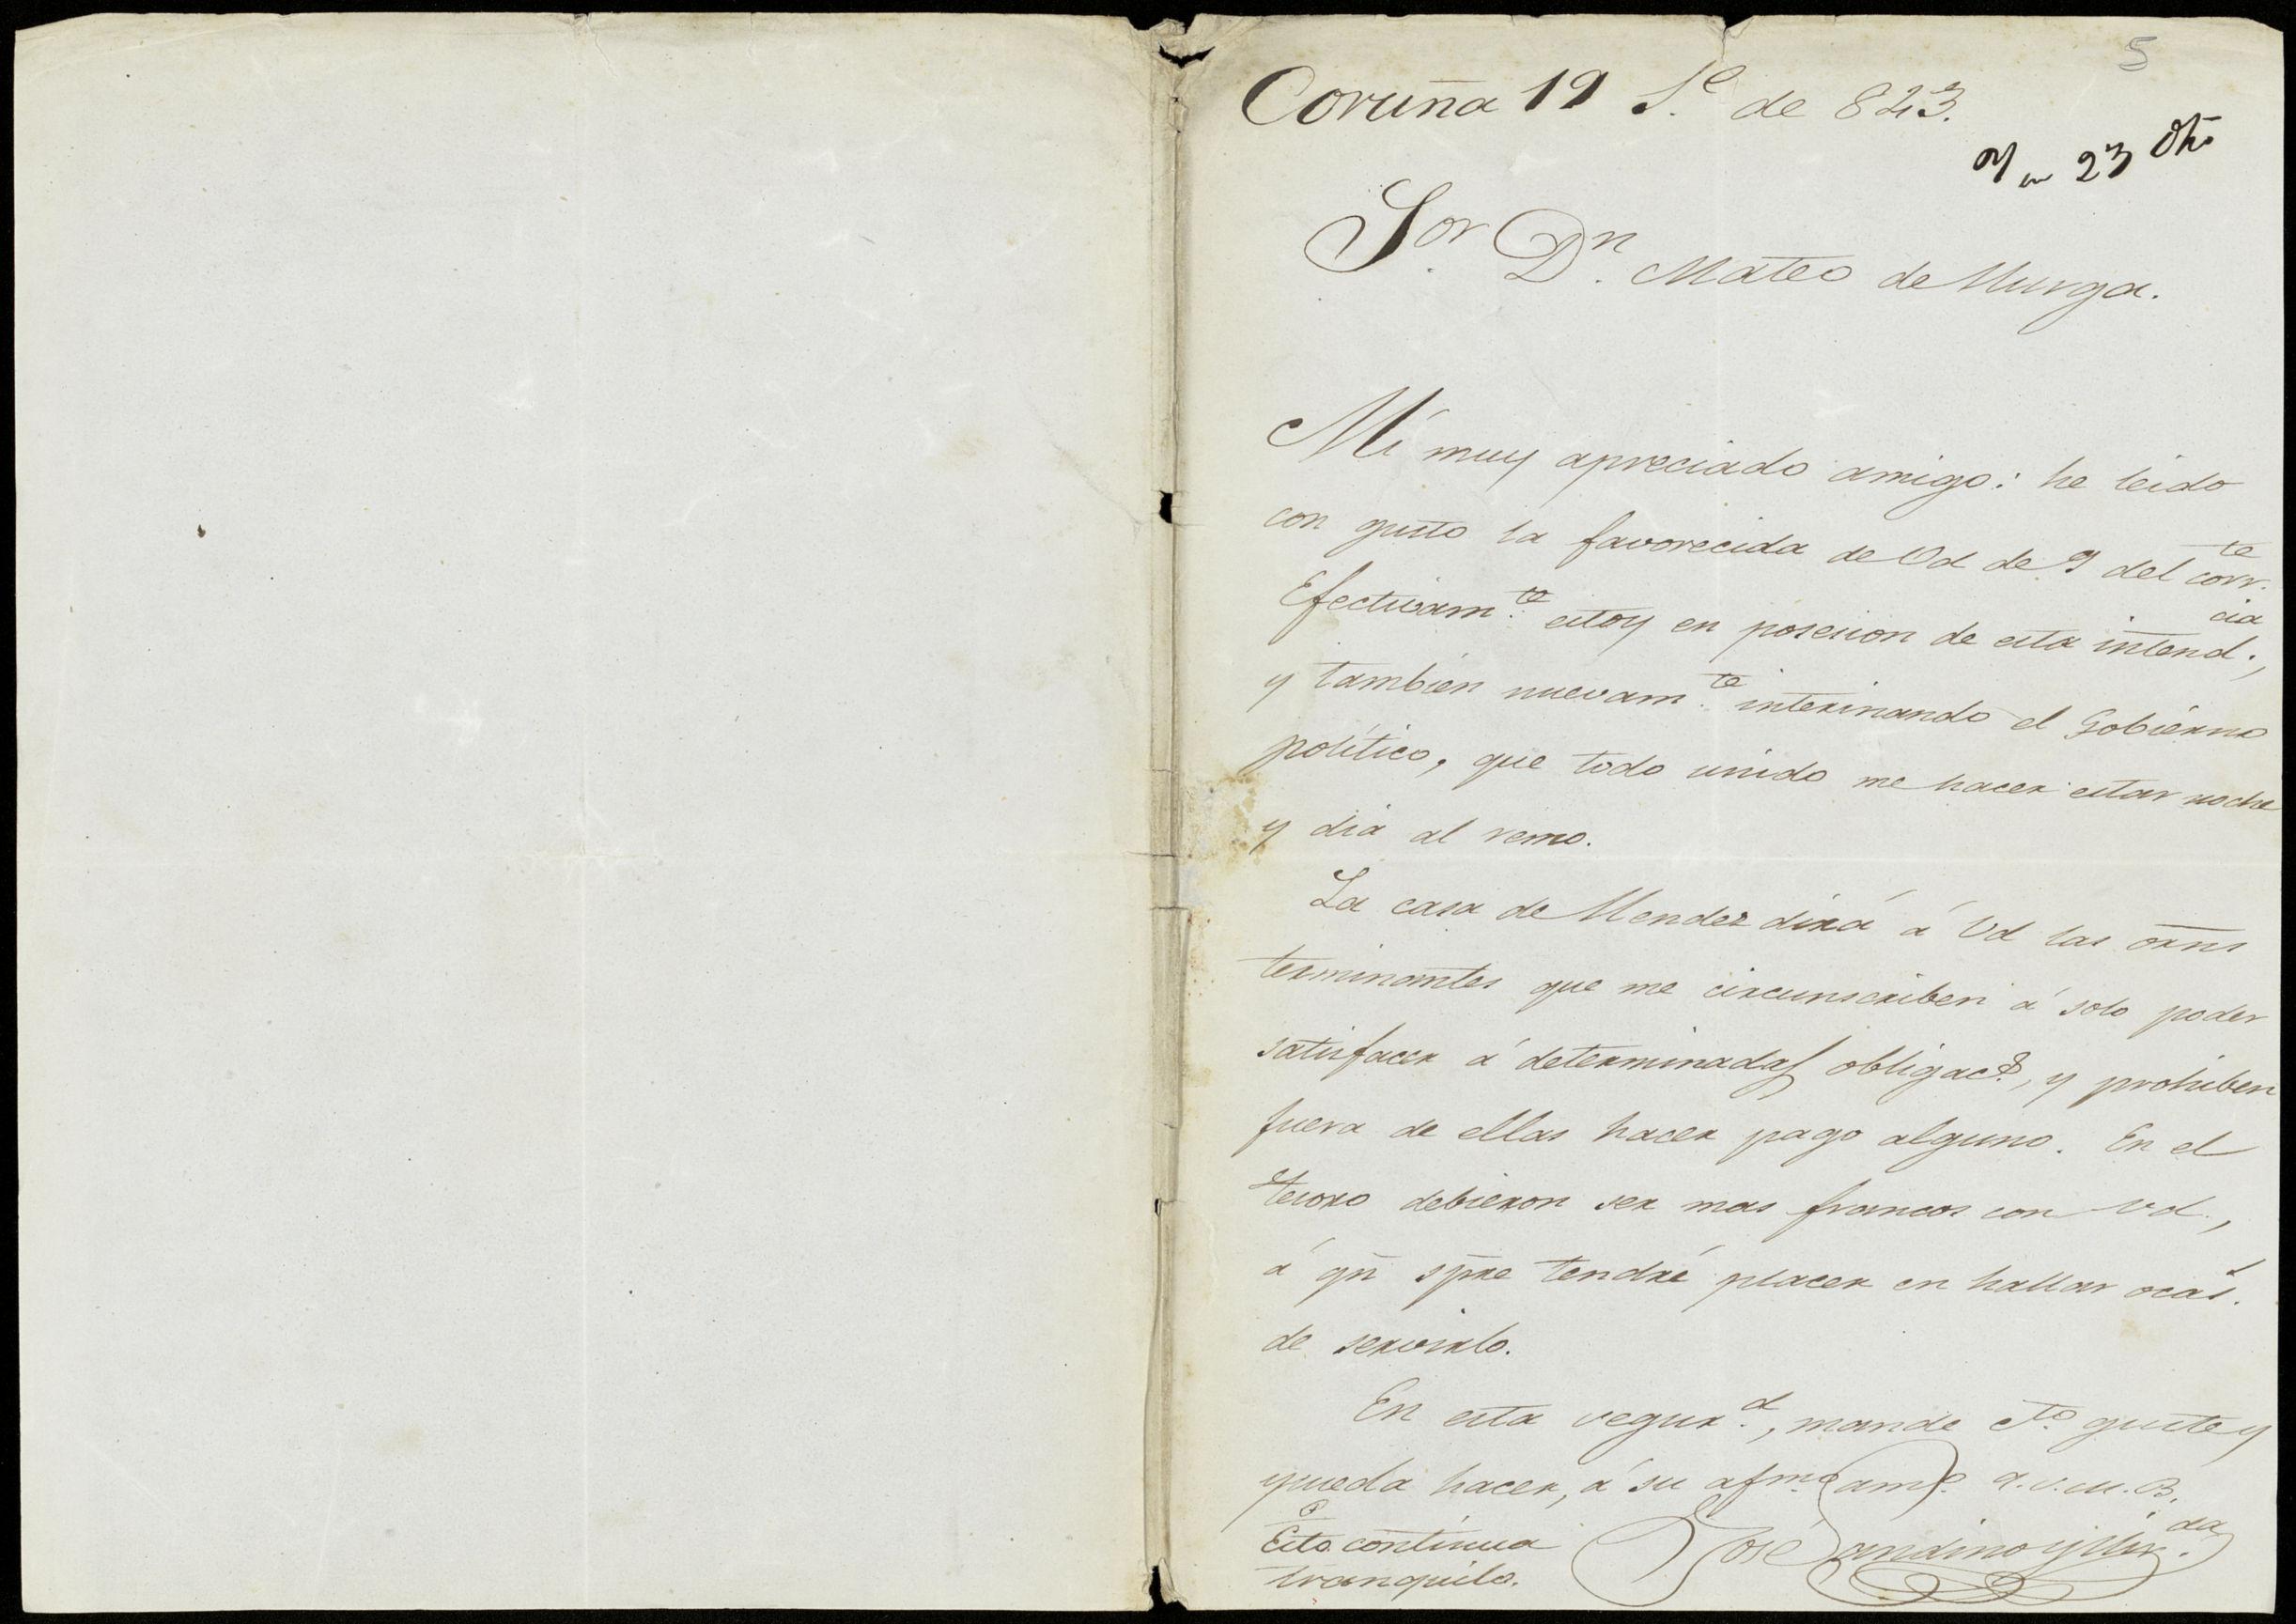 5
Coruña 19 S.e de 823.
23
Sor Dn. Mateo de Murga.
Mi muy apreciado amigo: he leido
con gusto la favorecida de Vd de 9 del corr.te
Efectivam.te estoy en posesion de esta intend.cia,
y tambien nuevam.te interinando el Gobierno
politico, que todo unido me hacen estar noche
y dia al remo.
La casa de Mendez dirá á Vd las orns
terminantes que me circunscriben á solo poder
satisfacer á determinadas obligac.s, y prohiben
fuera de ellas hacer pago alguno. En el
tesoro debieron ser mas francos con Vd.,
á qn spre tendré placer en hallar ocas.
de servirlo.
En esta segur.d, mande cto. guste y
pueda hacer, á su afmo. amo. q.s.M.B.
José Sandino y Mir.da
Esto continua
tranquilo.